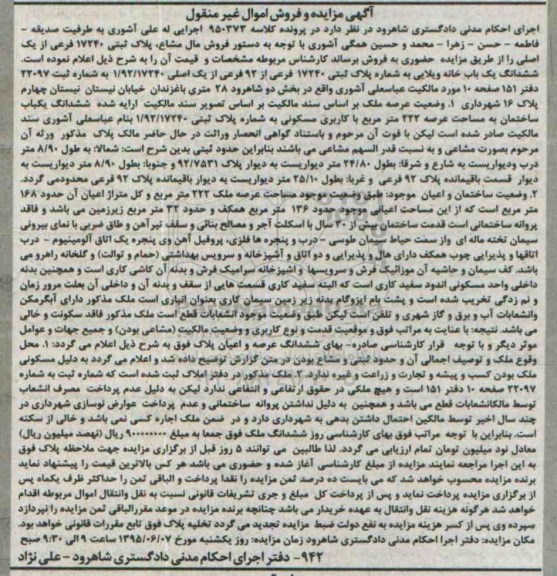 آگهی مزایده و فروش اموال غیر منقول
اجرای احکام مدنی دادگستری شاهرود در نظر دارد در پرونده کلاسه ۹۵۰۳۷۳ اجرایی له علی آشوری به طرفیت صدیقه -
فاطمه - حسن - زهرا - محمد و حسین همگی آشوری با توجه به دستور فروش مال مشاع، پلاک ثبتی ۱۷۲۴۰ فرعی از یک
اصلی را از طریق مزایده حضوری به فروش برساند کارشناس مربوطه مشخصات و قیمت آن را به شرح ذیل اعلام نموده است.
ششدانگ یک باب خانه ویلایی به شماره پلاک ثبتی ۱۷۲۴۰ فرعی از ۹۲ فرعی از یک اصلی ۱/۹۲/۱۷۲۴۰ به شماره ثبت ۲۲۰۹۷
دفتر ۱۵۱ صفحه ۱۰ مورد مالکیت عباسعلی آشوری واقع در بخش دو شاهرود ۲۸ متری باغزندان خیابان نیستان نیستان چهارم
پلاک ۱۶ شهرداری ۱. وضعیت عرصه ملک بر اساس سند مالکیت بر اساس تصویر سند مالکیت ارایه شده ششدانگ یکباب
ساختمان به مساحت عرصه ۲۲۲ متر مربع با کاربری مسکونی به شماره پلاک ثبتی ۱/۹۲/۱۷۲۴۰ بنام عباسعلی آشوری سند
مالکیت صادر شده است لیکن با فوت آن مرحوم و باستناد گواهی انحصار وراثت در حال حاضر مالک پلاک مذکور ورثه آن
مرحوم بصورت مشاعی و به نسبت قدر السهم مشاعی می باشند بنابراین حدود ثبتی بدین شرح است: شمالا: به طول ۸/۹۰ متر
درب ودیواریست به شارع و شرقا: بطول ۲۴/۸۰ متر دیواریست به دیوار پلاک ۹۲/۷۵۳۱ و جنوبا: بطول ۸/۹۰ متر دیواریست به
دیوار قسمت باقیمانده پلاک ۹۲ فرعی و غربا: بطول ۲۵/۱۰ متر دیواریست به دیوار باقیمانده پلاک ۹۲ فرعی محدودمی گردد.
۲. وضعیت ساختمان و اعیان موجود: طبق وضعیت موجود مساحت عرصه ملک ۲۲۲ متر مربع و کل متراژ اعیان آن حدود ۱۶۸
متر مربع است که از این مساحت اعیان موجود حدود ۱۳۶ متر مربع همکف و حدود ۳۲ متر مربع زیرزمین می باشد و فاقد
پروانه ساختمانی است قدمت ساختمان بیش از ۳۰ سال با اسکلت آجر و مصالح بنائی و سقف تیرآهن و طاق ضربی با نمای بیرونی
سیمان تخته ماله ای واز سمت حیاط سیمان طوسی - درب و پنجره ها فلزی، پروفیل آهن وی پنجره یک اتاق آلومینیوم - درب
اتاقها و پذیرایی چوب همکف دارای هال و پذیرایی و دو اتاق و آشپزخانه و سرویس بهداشتی (حمام و توالت) و گلخانه راهرو می
باشد. کف سیمان و حاشیه آن موزائیک فرش و سرویسها و آشپزخانه سرامیک فرش و بدنه آن کاشی کاری است و همچنین بدنه
داخلی واحد مسکونی اندود سفید کاری است که البته سفید کاری قسمت هایی از سقف و بدنه آن و داخلی آن بعلت مرور زمان
و نم زدگی تخریب شده است و پشت بام ایزوگام بدنه زیر زمین سیمان کاری بعنوان انباری است ملک مذکور دارای آبگرمکن
وانشعابات آب و برق و گاز شهری و تلفن است لیکن طبق وضعیت موجود انشعابات قطع است ملک مذکور فاقد سکونت و خالی
می باشد. نتیجه: با عنایت به مراتب فوق و موقعیت قدمت و نوع کاربری و وضعیت مالکیت (مشاعی بودن) و جمیع جهات و عوامل
موثر دیگر و با توجه قرار کارشناسی صادره- بهای ششدانگ عرصه و اعیان پلاک فوق به شرح ذیل اعلام می گردد: ۱. محل
وقوع ملک و توصیف اجمالی آن و حدود ثبتی و مشاع بودن در متن گزارش توضیح داده شد و اعلام می گردد به دلیل مسکونی
ملک بودن کسب و پیشه و تجارت و زراعت و غیره ندارد. ۲. ملک مذکور در دفتر املاک ثبت شده است که شماره ثبت به شماره
۲۲۰۹۷ صفحه ۱۰ دفتر ۱۵۱ است و هیچ ملکی در حقوق ارتفاعی و انتفاعی ندارد لیکن به دلیل عدم پرداخت مصرف انشعاب
توسط مالکانشعابات قطع می باشد و همچنین به دلیل نداشتن پروانه ساختمانی و عدم پرداخت عوارض نوسازی شهرداری در
چند سال اخیر توسط مالکین احتمال داشتن بدهی به شهرداری دارد و در ضمن ملک اجاره کسی نمی باشد و خالی از سکنه
است. بنابراین با توجه مراتب فوق بهای کارشناسی روز ششدانگ ملک فوق جمعا به مبلغ ۹۰۰۰۰۰۰۰۰ ریال (نهصد میلیون ریال)
معادل نود میلیون تومان تمام ارزیابی می گردد. لذا طالبین می توانند ۵ روز قبل از برگزاری مزایده جهت ملاحظه پلاک فوق
به این اجرا مراجعه نمایند مزایده از مبلغ کارشناسی آغاز شده و حضوری می باشد هر کس بالاترین قیمت را پیشنهاد نماید
برنده مزایده محسوب خواهد شد که می بایست ده درصد ثمن مزایده را نقدا پرداخت و الباقی ثمن را حداکثر ظرف یکماه پس
از برگزاری مزایده پرداخت نماید و پس از پرداخت کل مبلغ و جری تشریفات قانونی نسبت به نقل وانتقال اموال مربوطه اقدام
خواهد شد هرگونه هزینه نقل وانتقال به عهده خریدار می باشد چنانچه برنده مزایده در موعد مقررالباقی ثمن مزایده را نپردازد
سپرده وی پس از کسر هزینه مزایده به نفع دولت ضبط مزایده تجدید می گردد تخلیه پلاک فوق تابع مقررات قانونی خواهد بود.
مکان مزایده: دفتر اجرا احکام مدنی دادگستری شاهرود زمان مزایده: روز یکشنبه مورخ ۱۳۹۵/۰۶/۰۷ ساعت ۹ الی ۹:۳۰ صبح
۹۴۲- دفتر اجرای احکام مدنی دادگستری شاهرود - علی نژاد